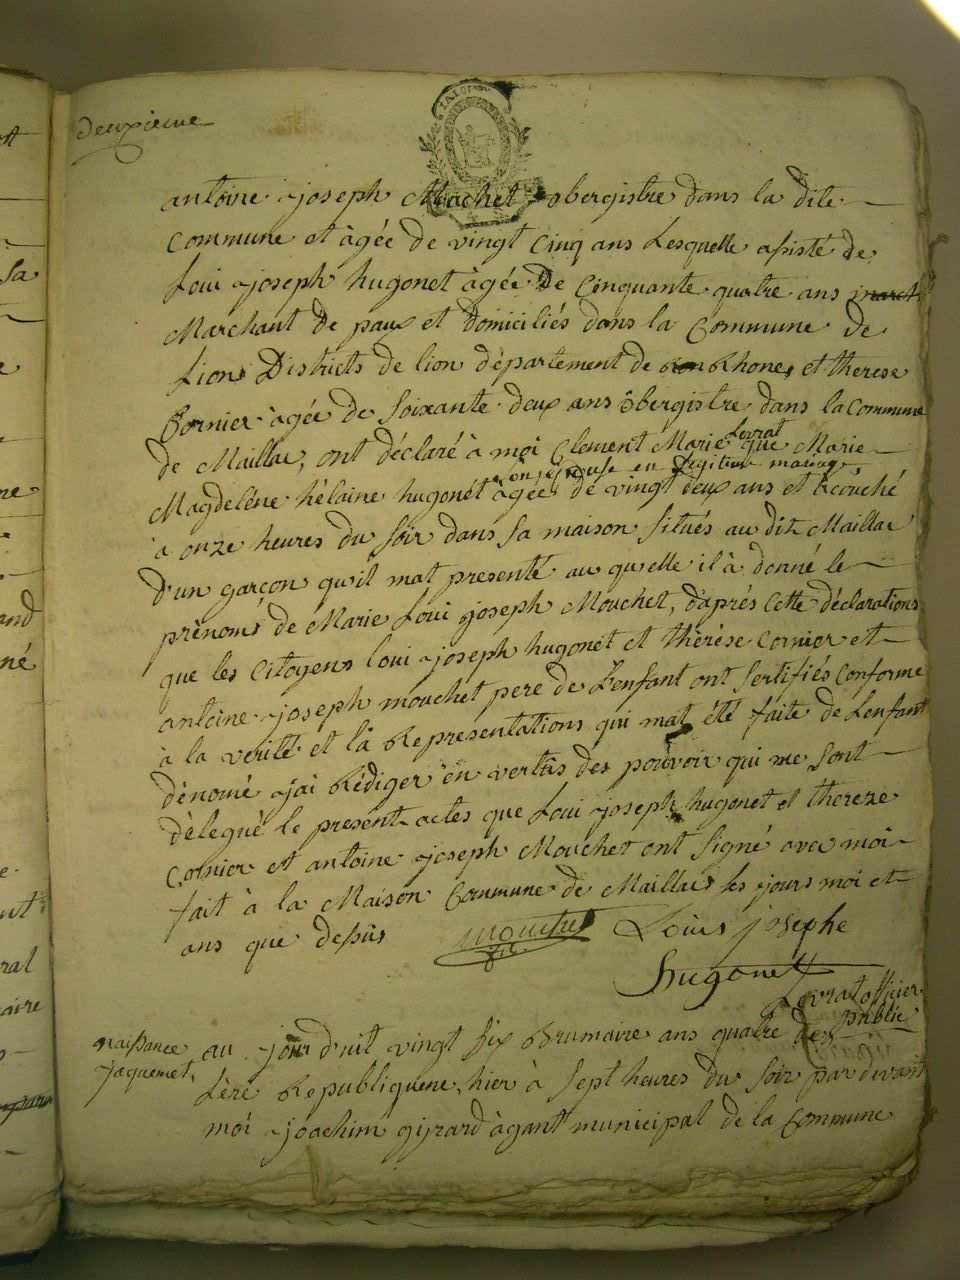 deuxieme
antoine joseph Mouchet obergistre dans la dite
Commune et àgée de vingt Cinq ans Lesquelle assisté de
Loui joseph hugonet àgée de Cinquante quatre ans
Marchant de paux et domiciliés dans la Commune de
Lions Districts de lion département de Rhone, et therese
Cornier àgée de Soixante deux ans obergistre dans la Commune
de Maillac, ont déclaré à moi Clement Marie Levrat que Marie
son epouse en legitime mariage,
Magdeléne hélaine hugonét àgée de vingt deux ans et àcouché
à onze heures du Soir dans Sa maison Situés au dit Maillac
D'un garçon qu'il mat presenté au quelle il à donné le
prénoms de Marie Loui joseph Mouchet, d'après Cette déclarations
que les Citoyens loui joseph hugonet et thérèse Cornier et
antoine joseph mouchet pere de L'enfant ont Sertifiés Conforme
à la verité et là Representations qui mat été faite de Lenfant
dénomé jai Rédiger en vertus des pouvoir qui me Sont
délegué le present actes que Loui joseph hugonet et thereze
Cornier et antoine joseph Mouchet ont Signé avec moi
fait à la Maison Commune de Maillac les jours moi et
ans que desus mouchet Louis josephe
hugonet
Levrat officier
public
naissance
jaquemet,
au jourd'uit vingt Six Brumaire ans quatre de
Lère Republiquene, hier à Sept heures du Soir par devant
moi joachim girard àgant municipal de la Commune